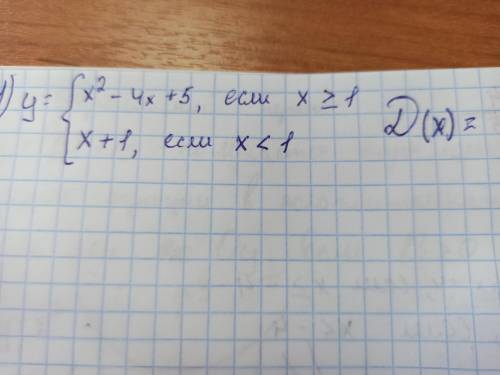 1) y = { x² - 4x + 5, если x ≥ 1
x + 1, если x < 1
D(x) =